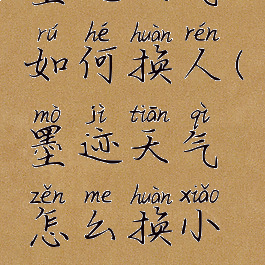 rú hé huàn rén
如何换人(
mò jì tiān qì
墨迹天气
zěn me huàn xiǎo
怎么换小